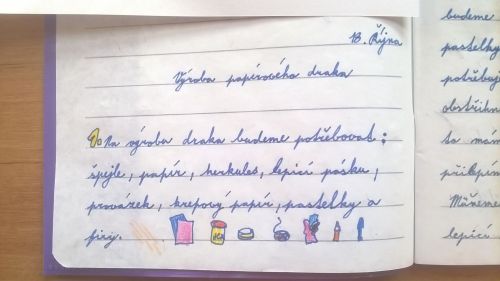 18. Října
Výroba papírového draka
1. Na výroba draka budeme potřebovat:
špejle, papír, herkules, lepící pásku,
provázek, krepový papír, pastelky a
fixy.
budeme
pastelky
potřebuj
obstřihn
ta mám
přilepím
Můžeme
lepící